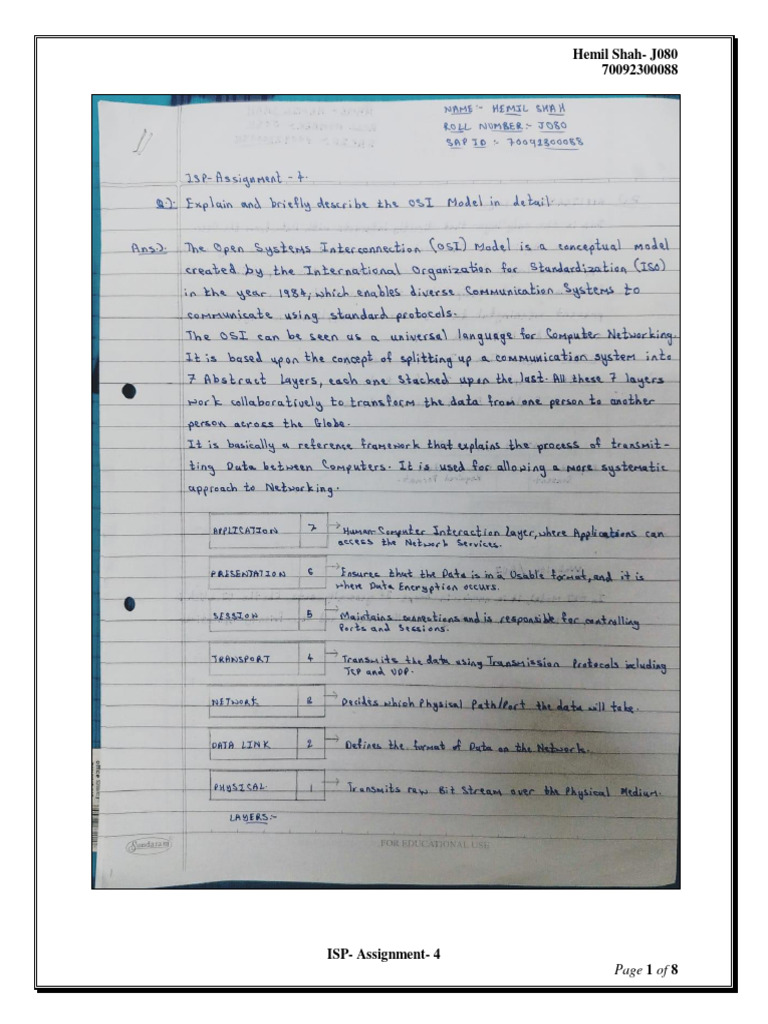 Hemil Shah- J080
70092300088
NAME:- HEMIL SHAH
ROLL NUMBER:- J080
SAP ID :- 70092300088
ISP-Assignment - 4.
Q.): Explain and briefly describe the OSI Model in detail.
Ans.): The Open Systems Interconnection (OSI) Model is a conceptual model
created by the International Organization for Standardization (ISO)
in the year 1984, which enables diverse Communication Systems to
communicate using standard protocols.
The OSI can be seen as a universal language for Computer Networking.
It is based upon the concept of splitting up a communication system into
7 Abstract Layers, each one Stacked upon the last. All these 7 layers
work collaboratively to transform the data from one person to another
person across the Globe.
It is basically a reference framework that explains the process of transmit-
ting Data between Computers. It is used for allowing a more systematic
approach to Networking.
APPLICATION 7 → Human-Computer Interaction Layer, where Applications can
access the Network Services.
PRESENTATION 6 → Ensures that the Data is in a Usable format, and it is
where Data Encryption occurs.
SESSION 5 → Maintains connections and is responsible for controlling
Ports and Sessions.
TRANSPORT 4 → Transmits the data using Transmission Protocols including
TCP and UDP.
NETWORK 3 → Decides which Physical Path/Port the data will take.
DATA LINK 2 → Defines the format of Data on the Network.
PHYSICAL 1 → Transmits raw Bit Stream over the Physical Medium.
LAYERS:-
Sundaram
FOR EDUCATIONAL USE
ISP- Assignment- 4
Page 1 of 8